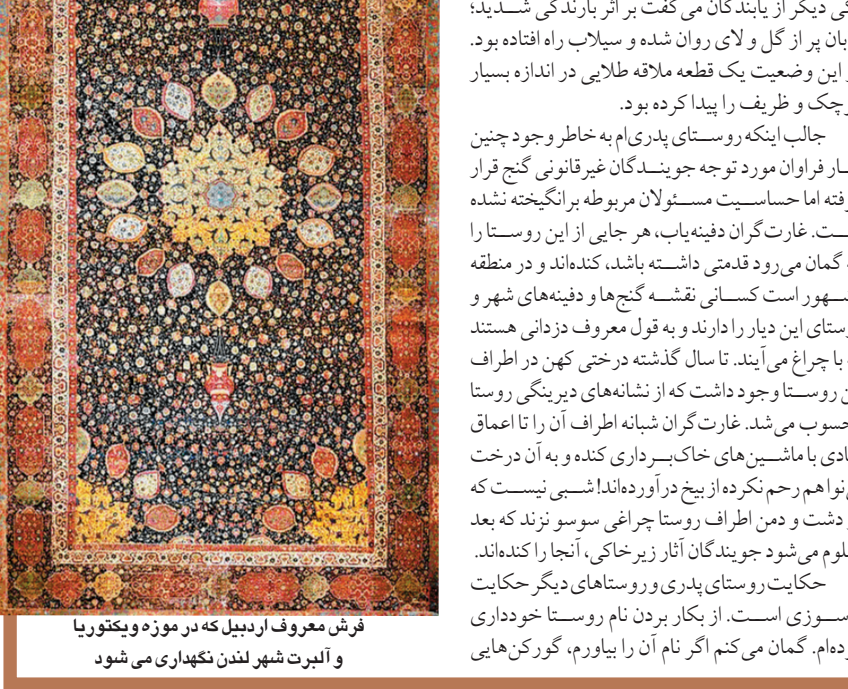 دیگر از یابندگان می‌گفت بر اثر بارندگی شدید؛
پر از گل و لای روان شده و سیلاب راه افتاده بود.
این وضعیت یک قطعه ملاقه طلایی در اندازه بسیار
و ظریف را پیدا کرده بود.
جالب اینکه روستای پدری‌ام به خاطر وجود چنین
فراوان مورد توجه جویندگان غیرقانونی گنج قرار
اما حساسیت مسئولان مربوطه برانگیخته نشده
غارت‌گران دفینه‌یاب، هر جایی از این روستا را
گمان می‌رود قدمتی داشته باشد، کنده‌اند و در منطقه
است کسانی نقشه گنج‌ها و دفینه‌های شهر و
این دیار را دارند و به قول معروف دزدانی هستند
با چراغ می‌آیند. تا سال گذشته درختی کهن در اطراف
روستا وجود داشت که از نشانه‌های دیرینگی روستا
می‌شد. غارت‌گران شبانه اطراف آن را تا اعماق
با ماشین‌های خاک‌برداری کنده و به آن درخت
هم رحم نکرده از بیخ درآورده‌اند! شبی نیست که
دشت و دمن اطراف روستا چراغی سوسو نزند که بعد
می‌شود جویندگان آثار زیرخاکی، آنجا را کنده‌اند.
حکایت روستای پدری و روستاهای دیگر حکایت
است. از بکار بردن نام روستا خودداری
گمان می‌کنم اگر نام آن را بیاورم، گورکن‌هایی
فرش معروف اردبیل که در موزه ویکتوریا
و آلبرت شهر لندن نگهداری می شود